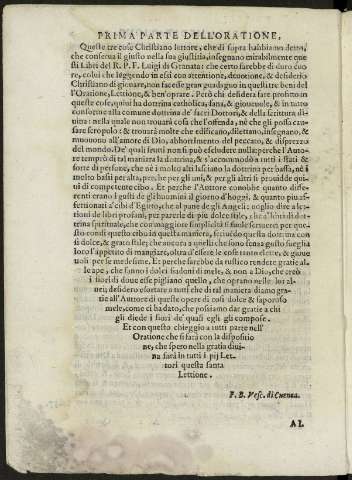 PRIMA PARTE DELL'ORATIONE,
Queste tre cose Christiano lettore, che di sopra habbiamo detto,
che conserua il giusto nella sua giustitia, insegnano mirabilmente que
sti Libri del R. P. F. Luigi di Granata: che certo sarebbe di duro cuo-
re, colui che leggendo in essi con attentione, deuotione, & desiderio
Christiano di giouare, non facesse gran guadagno in questi tre beni del
l'Oratione, Lettione, & ben'oprare. Però chi desidera fare profitto in
queste cose, quiui ha dottrina catholica, sana, & gioueuole, & in tutto
conforme alla comune dottrina de' sacri Dottori, & della scrittura di-
uina: nella quale non trouarà cosa che l'offenda, nè che gli possa cau-
sare scropolo: & trouarà molte che edificano, dilettano, insegnano, &
muouono all'amore di Dio, abhorrimento del peccato, & dispprezzo
del mondo. De' quai frutti non si può escludere nulla perche l'Autto
re temprò di tal maniera la dottrina, & s'accommodò a tutti i stati &
sorte di persone, che nè i molto alti lasciano la dottrina per bassa, nè i
molto bassi per alta, perche per gli uni, & per gli altri si prouidde qui-
ui di competente cibo. Et perche l'Auttore conobbe quanto diffe-
renti erano i gusti de gli huomini il giorno d'hoggi, & quanto piu af-
fettionati a' cibi d'Egitto, che al pane de gli Angeli: uoglio dire a let-
tioni de libri profani, per parerle di piu dolce stile, che a' libri di dot-
trina spirituale, che con maggiore simplicità si suole scriuere per que-
sto condì questo cibo di questa maniera, scriuendo questa dottrina con
sì dolce, & grato stile; che ancora a quelli che sono senza gusto sueglia
loro l'appetito di mangiare, oltra d'essere le cose tanto elette, & gioue
uoli per le medesime. Et perche sarebbe da rustico rendere gratie al-
le ape, che fanno i dolci fiadoni di mele, & non a Dio, che creò
i fiori di doue esse pigliano quello, che oprano nelle lor al-
uei; desidero esortare a tutti che di tal maniera diamo gra-
tie all'Auttore di queste opere di così dolce & saporoso
mele, come ci ha dato, che possiamo dar gratie a chi
gli diede i fiori de' quali egli gli compose.
Et con questo chieggio a tutti parte nell'
Oratione che si farà con la dispositio
ne, che spero nella gratia diui
na sarà in tutti i pij Let-
tori questa santa
Lettione.
F. B. Vesc. di Cuenca.
AL